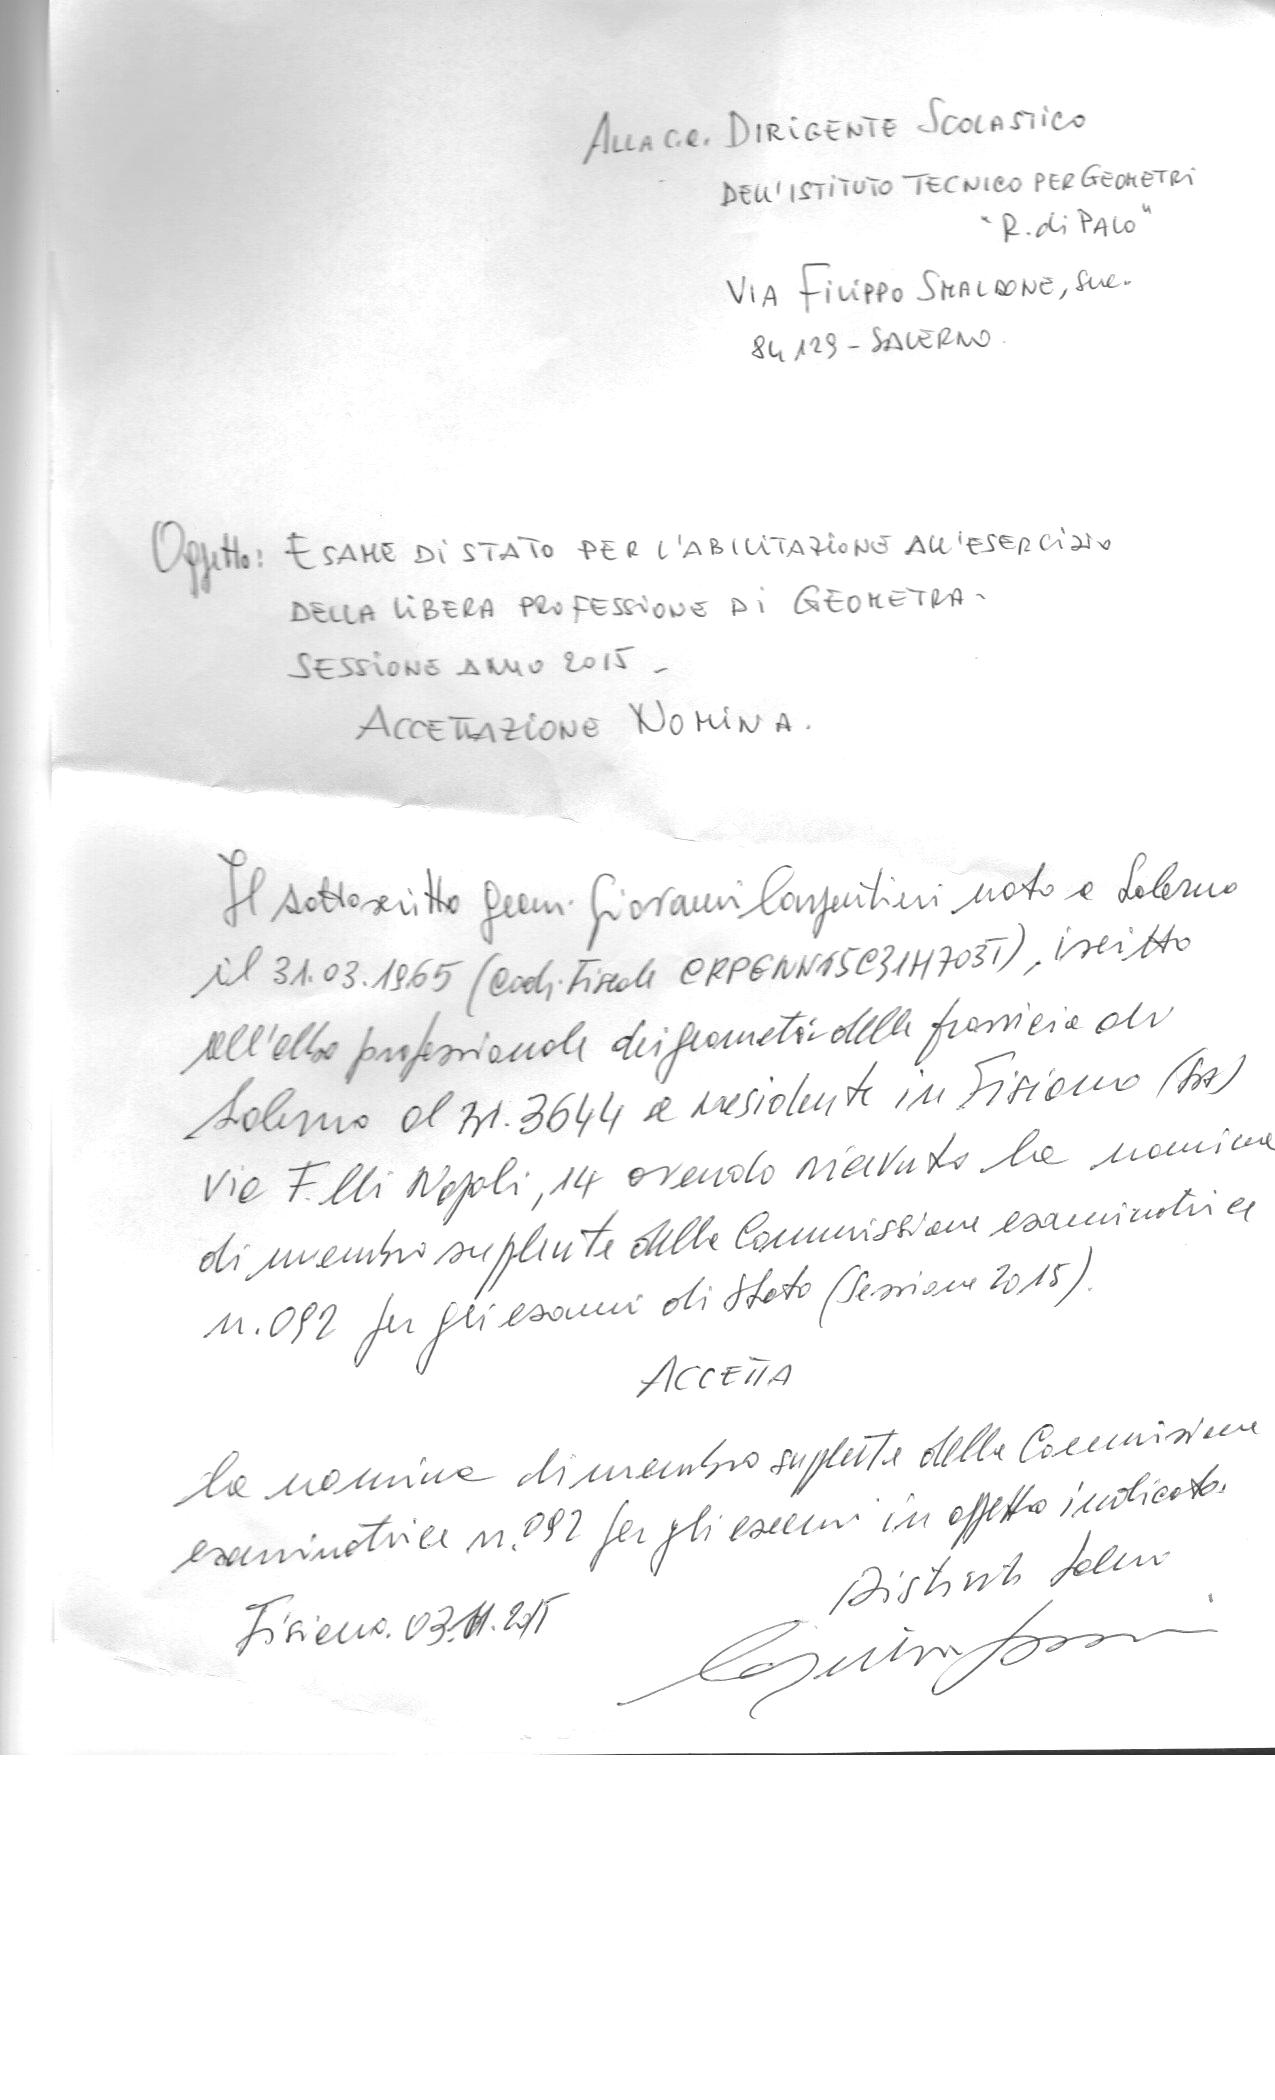 ALLA C.A. DIRIGENTE SCOLASTICO
DELL'ISTITUTO TECNICO PER GEOMETRI
"R. di PALO"
VIA FILIPPO SMALDONE, snc.
84129 - SALERNO.
Oggetto: ESAME DI STATO PER L'ABILITAZIONE ALL'ESERCIZIO
DELLA LIBERA PROFESSIONE DI GEOMETRA -
SESSIONE ANNO 2015 -
ACCETTAZIONE NOMINA.
Il sottoscritto geom. Giovanni Carpentieri nato a Salerno
il 31.03.1965 (Cod. Fiscale CRPGNN65C31H703T), iscritto
all'albo professionale dei geometri della provincia di
Salerno al n. 3644 e residente in Fisciano (SA)
via F.lli Napoli, 14 avendo ricevuto la nomina
di membro supplente della Commissione esaminatrice
n. 092 per gli esami di Stato (Sessione 2015).
ACCETTA
la nomina di membro supplente della Commissione
esaminatrice n. 092 per gli esami in oggetto indicato.
Distinti Saluti
Fisciano. 03.11.2015